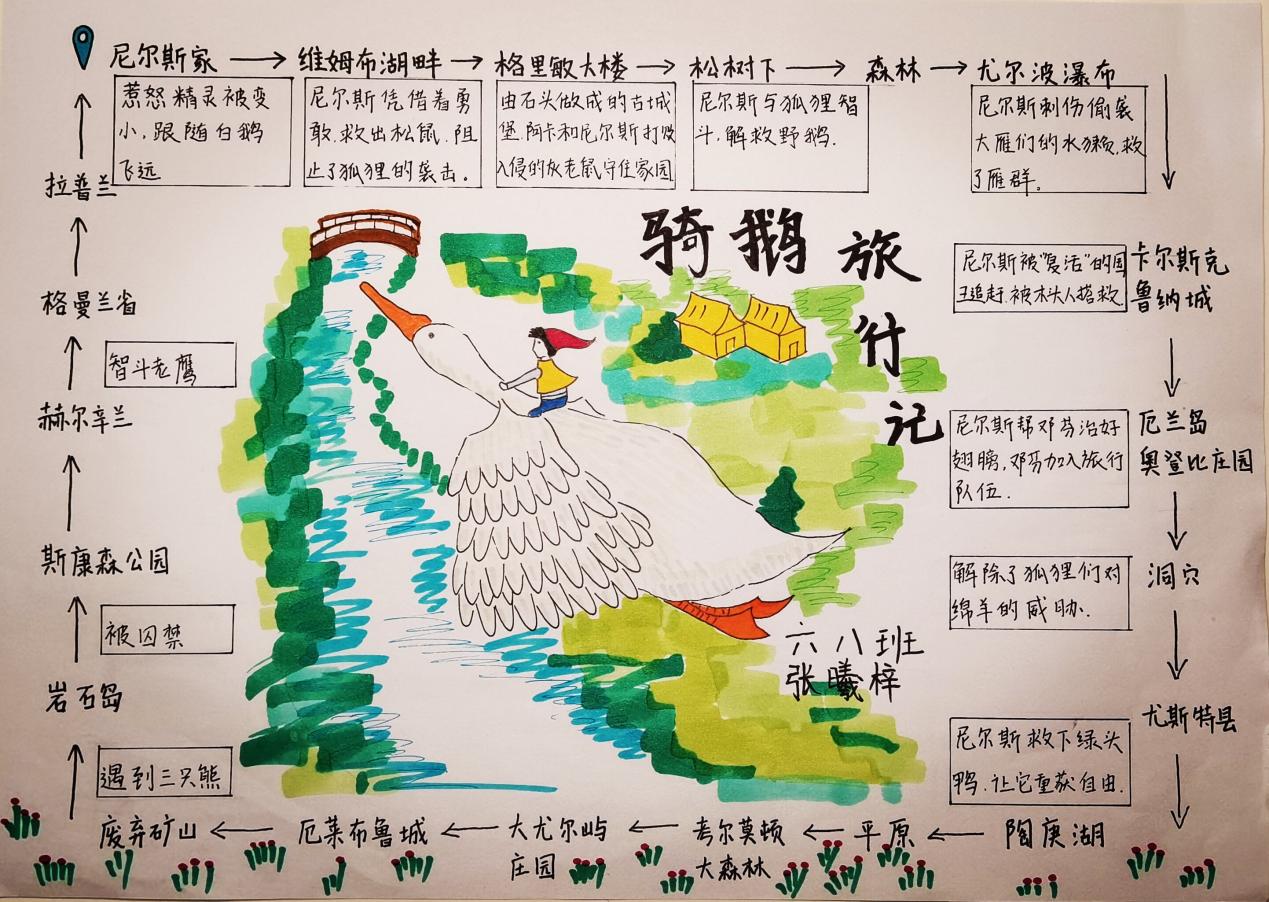 尼尔斯家 → 维姆布湖畔 → 格里敏大楼 → 松树下 → 森林 → 尤尔波瀑布
惹怒精灵被变
小,跟随白鹅
飞远
尼尔斯凭借着勇
敢,救出松鼠,阻
止了狐狸的袭击。
由石头做成的古城
堡.阿卡和尼尔斯打败
入侵的灰老鼠守住家园
尼尔斯与狐狸智
斗,解救野鹅.
尼尔斯刺伤偷袭
大雁们的水獭,救
了雁群。
骑鹅旅行记
尼尔斯被“复活”的国
王追赶.被木头人搭救.
卡尔斯克
鲁纳城
尼尔斯帮邓芬治好
翅膀,邓芬加入旅行
队伍.
厄兰岛
奥登比庄园
解除了狐狸们对
绵羊的威胁.
洞穴
六八班
张曦梓
尼尔斯救下绿头
鸭.让它重获自由.
尤斯特县
陶庚湖
平原
考尔莫顿
大森林
大尤尔屿
庄园
厄莱布鲁城
废弃矿山
遇到三只熊
岩石岛
被囚禁
斯康森公园
赫尔辛兰
智斗老鹰
格曼兰省
拉普兰